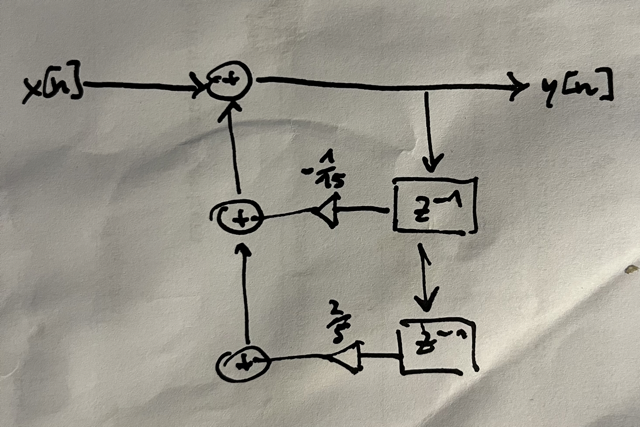 x[n] + y[n]
-1/15
+ z⁻¹
2/5
+ z⁻¹